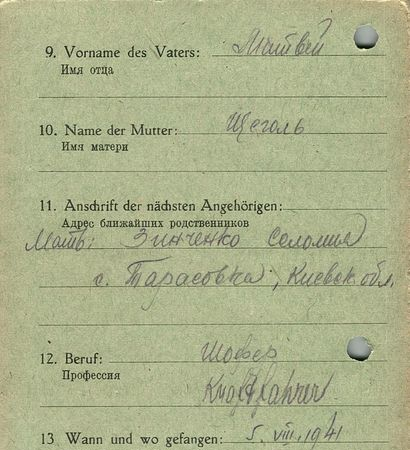 9. Vorname des Vaters: Матвей
Имя отца
10. Name der Mutter: Щеголь
Имя матери
11. Anschrift der nächsten Angehörigen:
Адрес ближайших родственников
Мать: Зинченко Соломия
с. Тарасовка, Киевск обл.
12. Beruf: Шофер
Профессия
Kraftfahrer
13. Wann und wo gefangen: 5. VIII. 1941